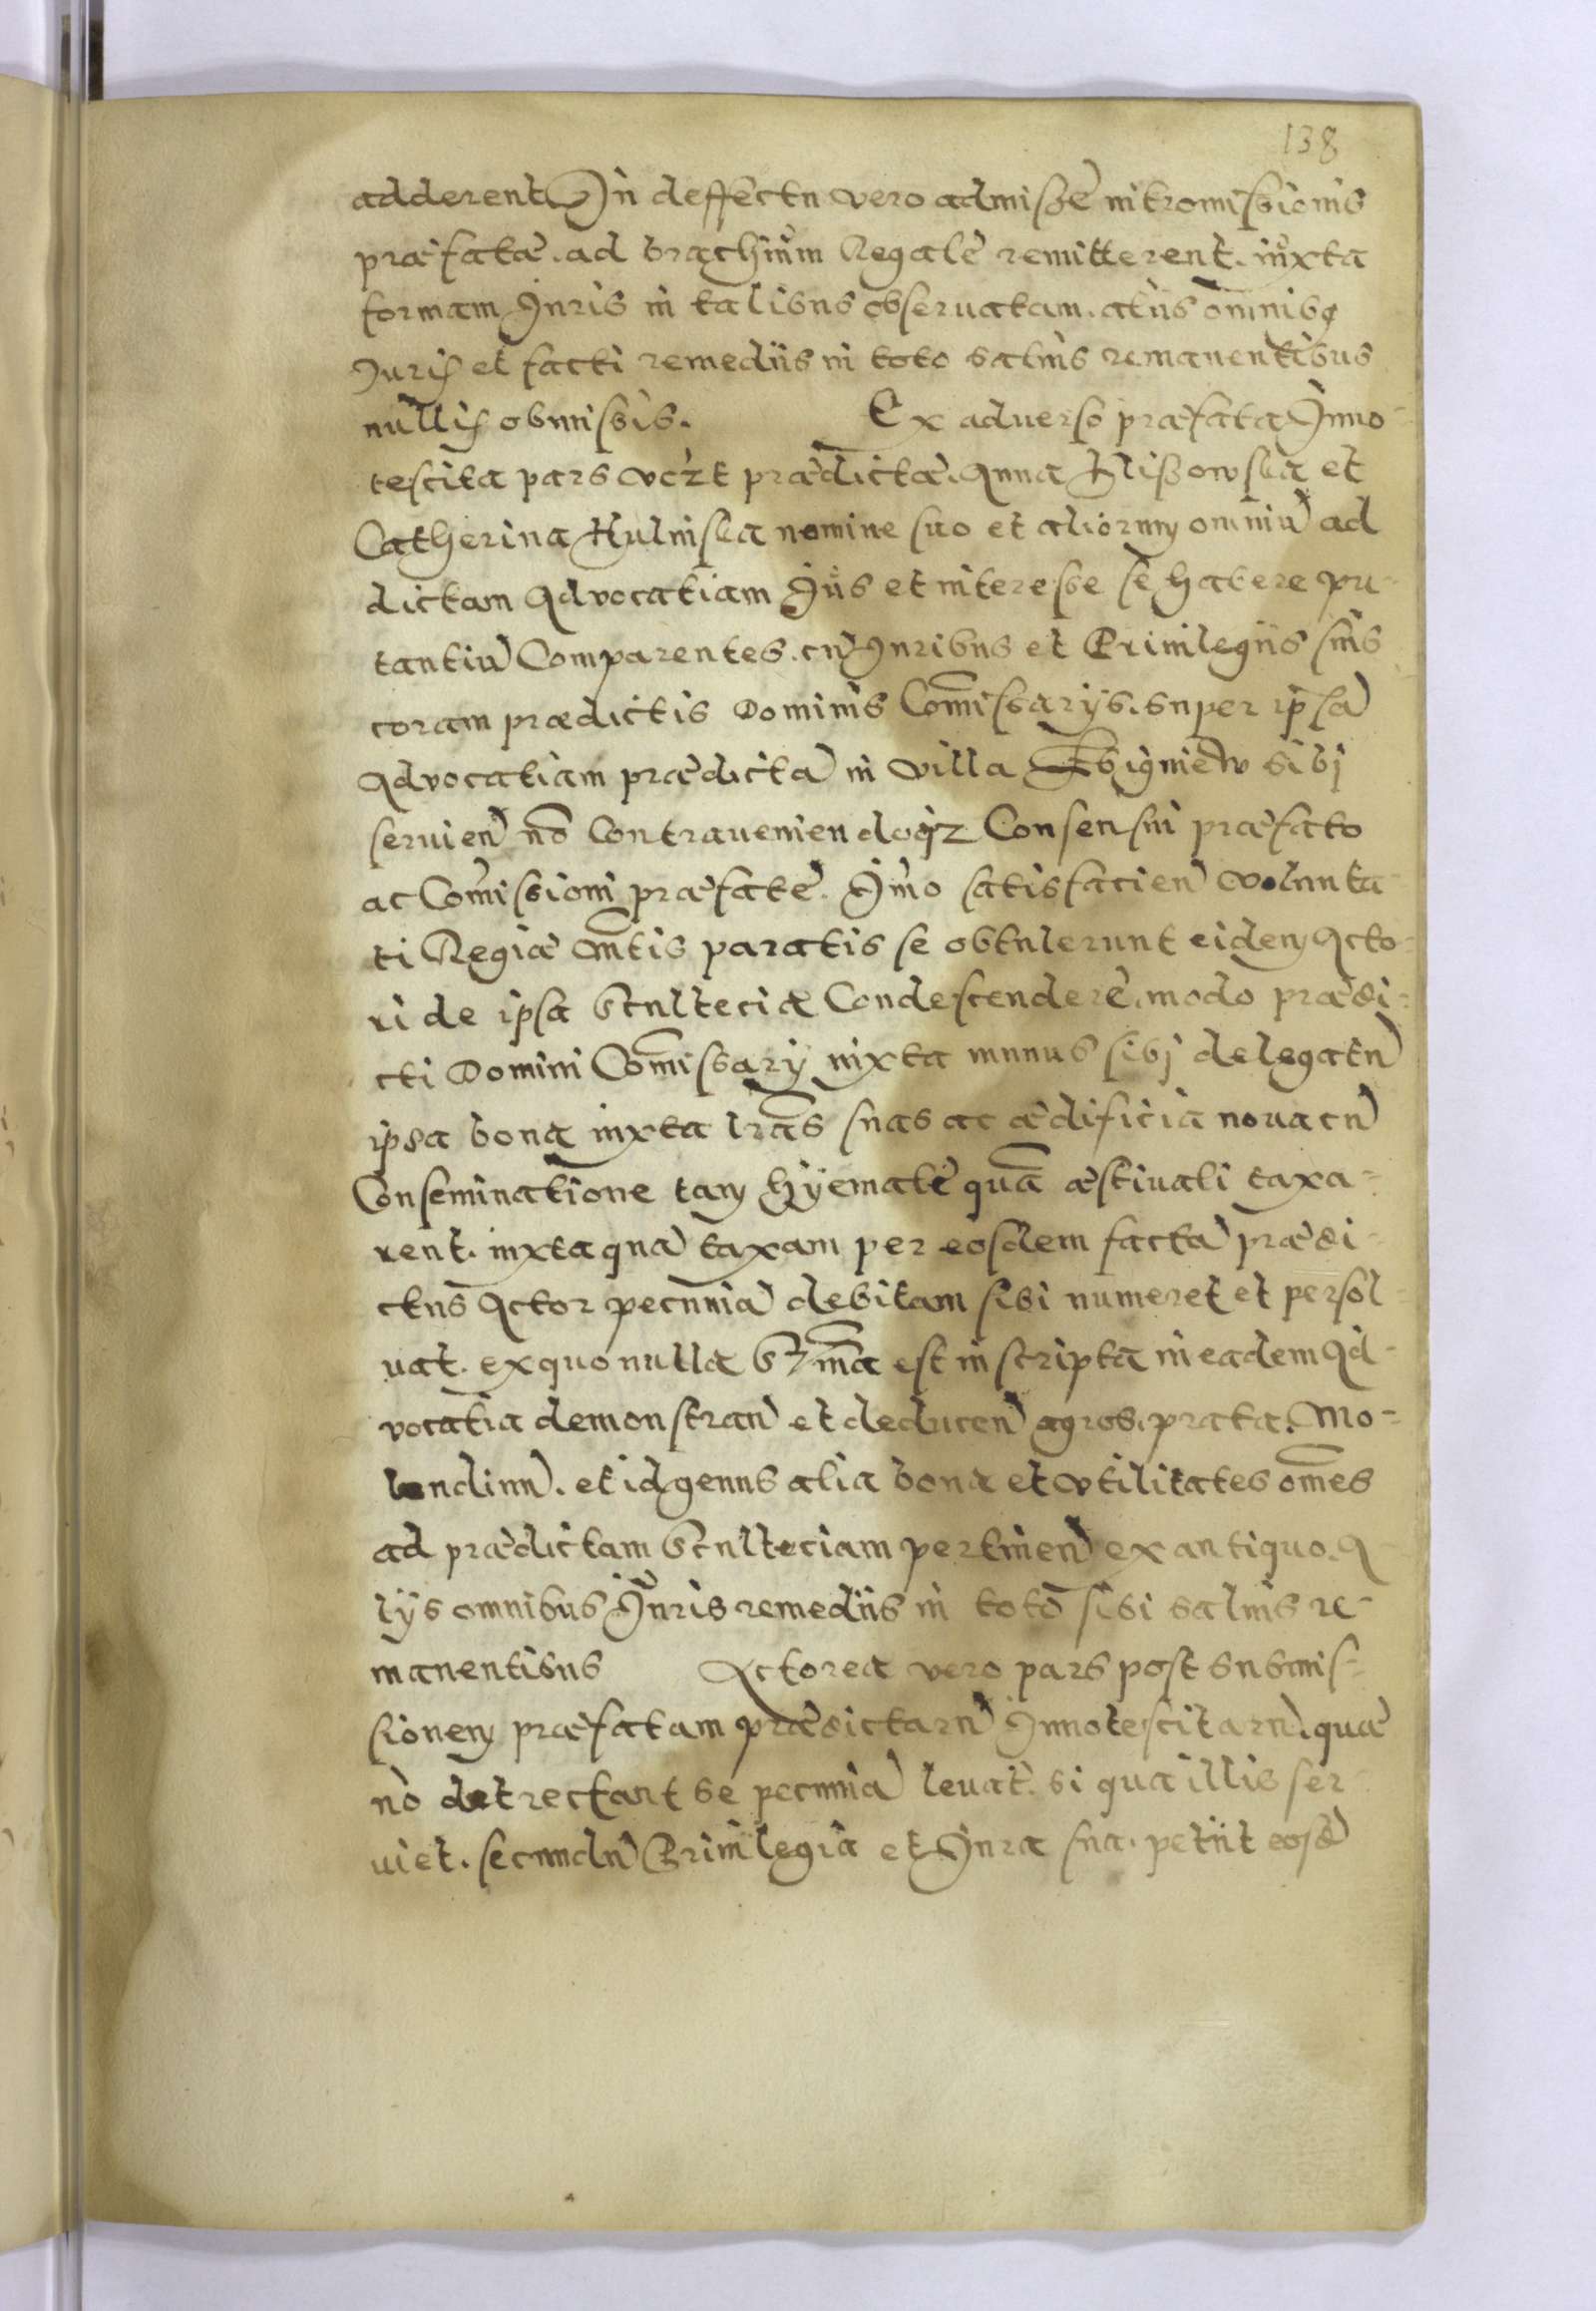 138
adderent. In deffectu vero admissè intromissionis
præfatæ. ad brachium Regalè remitterent. iuxta
formam Juris in talibus obseruatam. aliis omnibus
Juris et facti remediis in toto saluis remanentibus
nullis obmissis. Ex aduerso præfata Inno-
tescita pars vczt prædictæ. Anna Klissowska et
Catherina Kulniska nomine suo et aliorum omniū ad
dictam Advocatiam Jus et interesse se habere pu-
tantiū Comparentes. cū Juribus et Priuilegiis suis
coram prædictis Dominis Com̄issarys. super ipsā
Advocatiam prædictā in villa Sbigniew sibj
seruien̄ nō contraueniendoqz Consensui præfato
ac Com̄issioni præfatè. Im̄o satisfacien̄ volunta-
ti Regiæ Mtis paratis se obtulerunt eidem Acto-
ri de ipsa Scultecia Condescenderè. modo prædi-
cti Domini Com̄issary iuxta munus sibj delegatū
ipsa bona iuxta lrās suas ac ædificia noua cū
Conseminatione tam hÿemalè quā æstiuali taxa-
rent. iuxta quā taxam per eosdem factā prædi-
ctus Actor pecuniā debitam sibi numeret et persol-
uat. ex quo nulla Sum̄a est inscripta in eadem Ad-
vocatia demonstran̄ et deducen̄ agros. prata. Mo-
lendinū. et id genus alia bona et vtilitates om̄es
ad prædictam Sculteciam pertinen̄ ex antiquo. A
lÿs omnibus Juris remediis in toto sibi saluis re-
manentibus Actorea vero pars post submis-
sionem præfatam prædictarū Innotescitarū. quæ
nō detrectant se pecuniā leuat. si qua illis ser-
uiet. secundū Priuilegia et Jura sua. petiit eosd̄